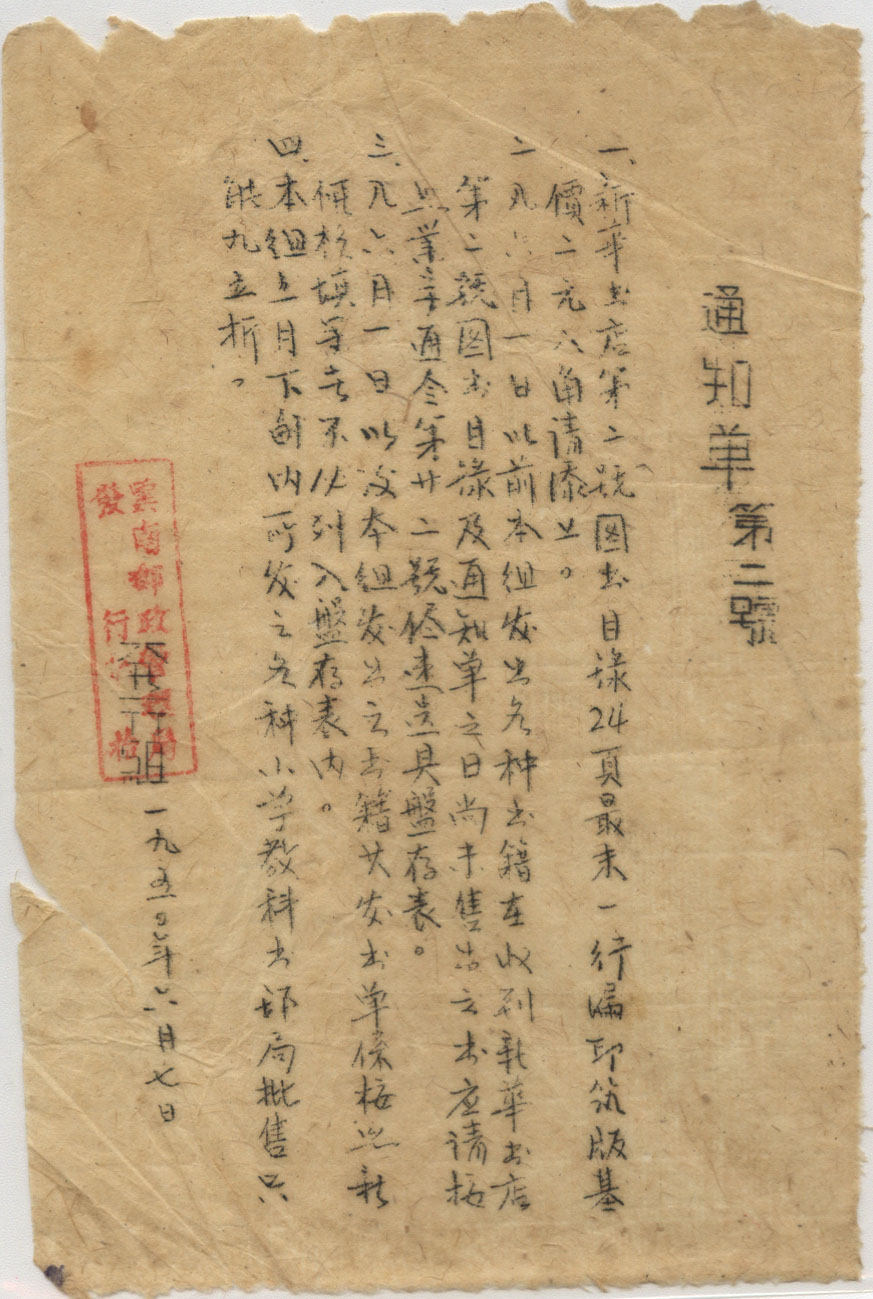 通知单 第二號
一、新华书店第二號图书目录24頁最末一行漏印筑版基
價二元八角请添上。
二、凡六月一日以前本组发出各种书籍在收到新華书店
第二號图书目录及通知单之日尚未售出之书应请按
照業字通令第廿二號修速造具盤存表。
三、凡六月一日以後本组发出之书籍其发书单係按照新
價核填者不必列入盤存表内。
四、本组五月下旬内所发之各科小学教科书邮局批售只
能九五折。
雲南郵政管理局
發行
发行组 一九五〇年六月七日